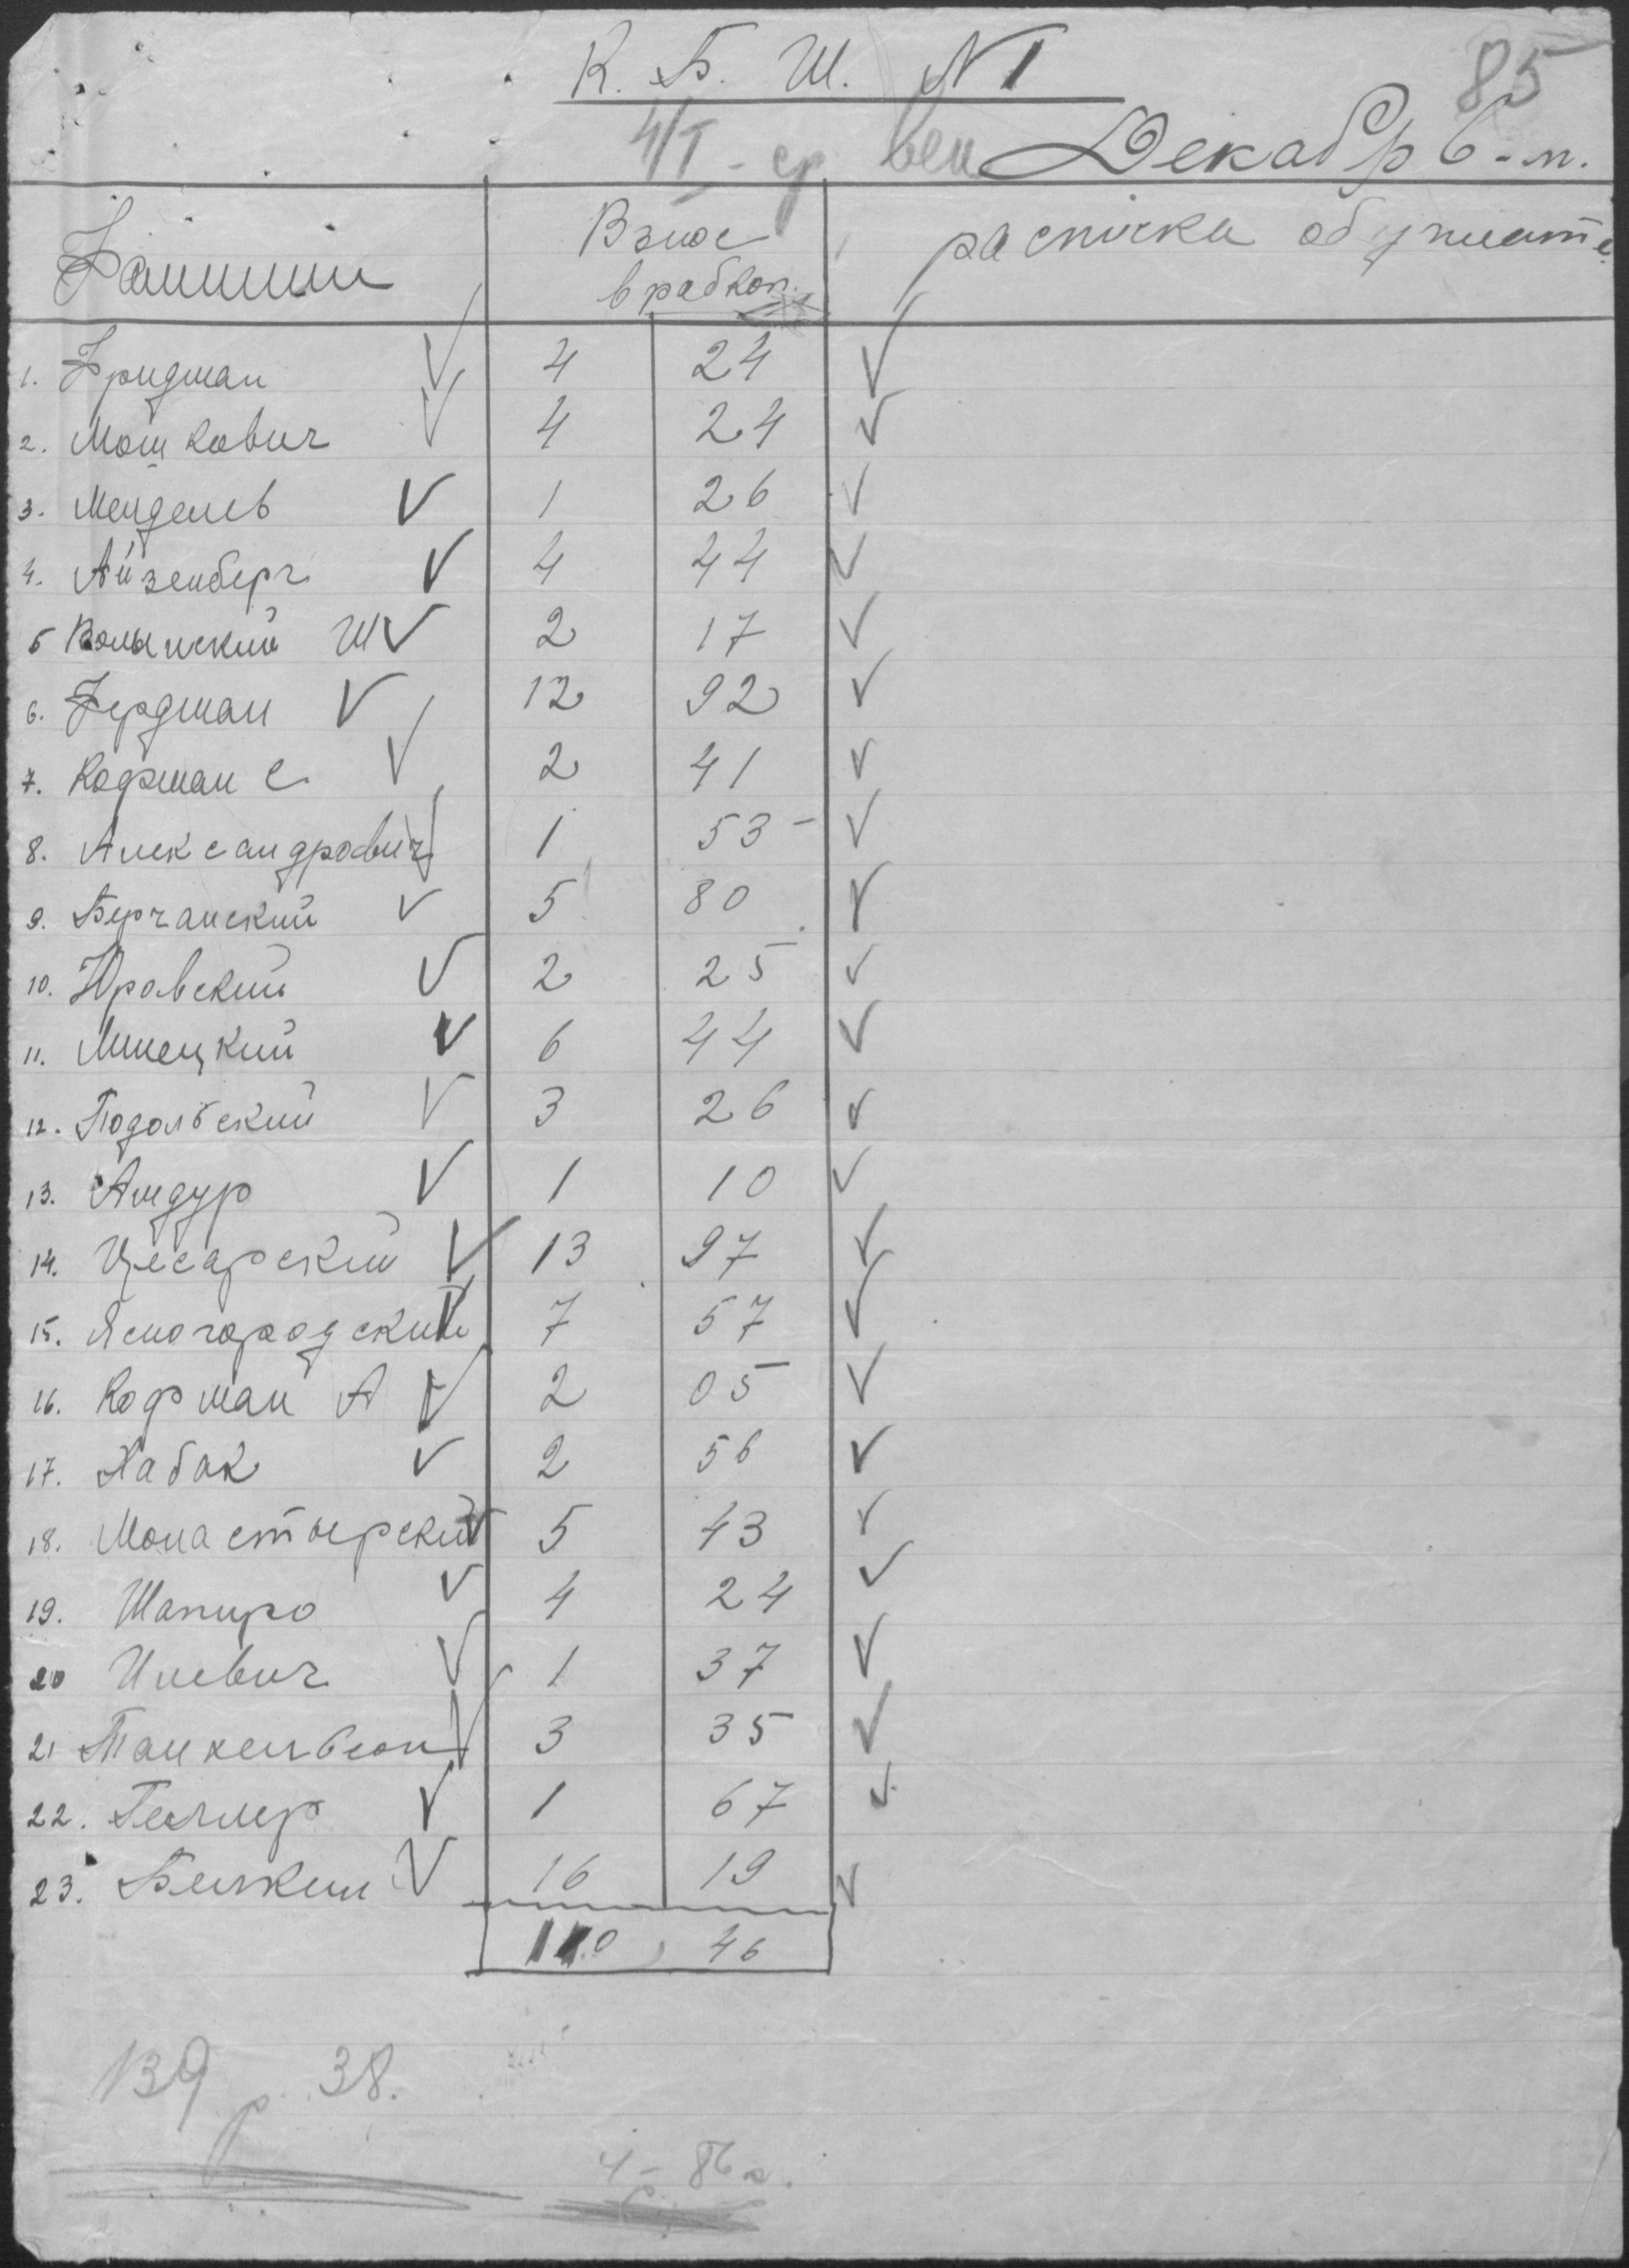 85
К. Б. Ш. N 1
4/I - ср Декабрь-м.
Фамилии Взнос в рабкоп. расписка
1. Фридман √ 4 24 √
2. Мошкович √ 4 24 √
3. Мендель √ 1 26 √
4. Айзенберг √ 4 44 √
5 Волынский Ш √ 2 17 √
6. Фердман √ 12 92 √
7. Кофман С √ 2 41 √
8. Александрович √ 1 53 √
9. Берчанский √ 5 80 √
10. Юровский √ 2 25 √
11. Линецкий √ 6 44 √
12. Подольский √ 3 26 √
13. Амдур √ 1 10 √
14. Цесарский √ 13 97 √
15. Ясногородский √ 7 57 √
16. Кофман А √ 2 05 √
17. Хабак √ 2 56 √
18. Монастырский √ 5 43 √
19. Шапиро √ 4 24 √
20 Илевич √ 1 37 √
21 Танкельсон √ 3 35 √
22. Геллер √ 1 67 √
23. Белкин √ 16 19 √
110, 46
139 р. 38.
4 - 86